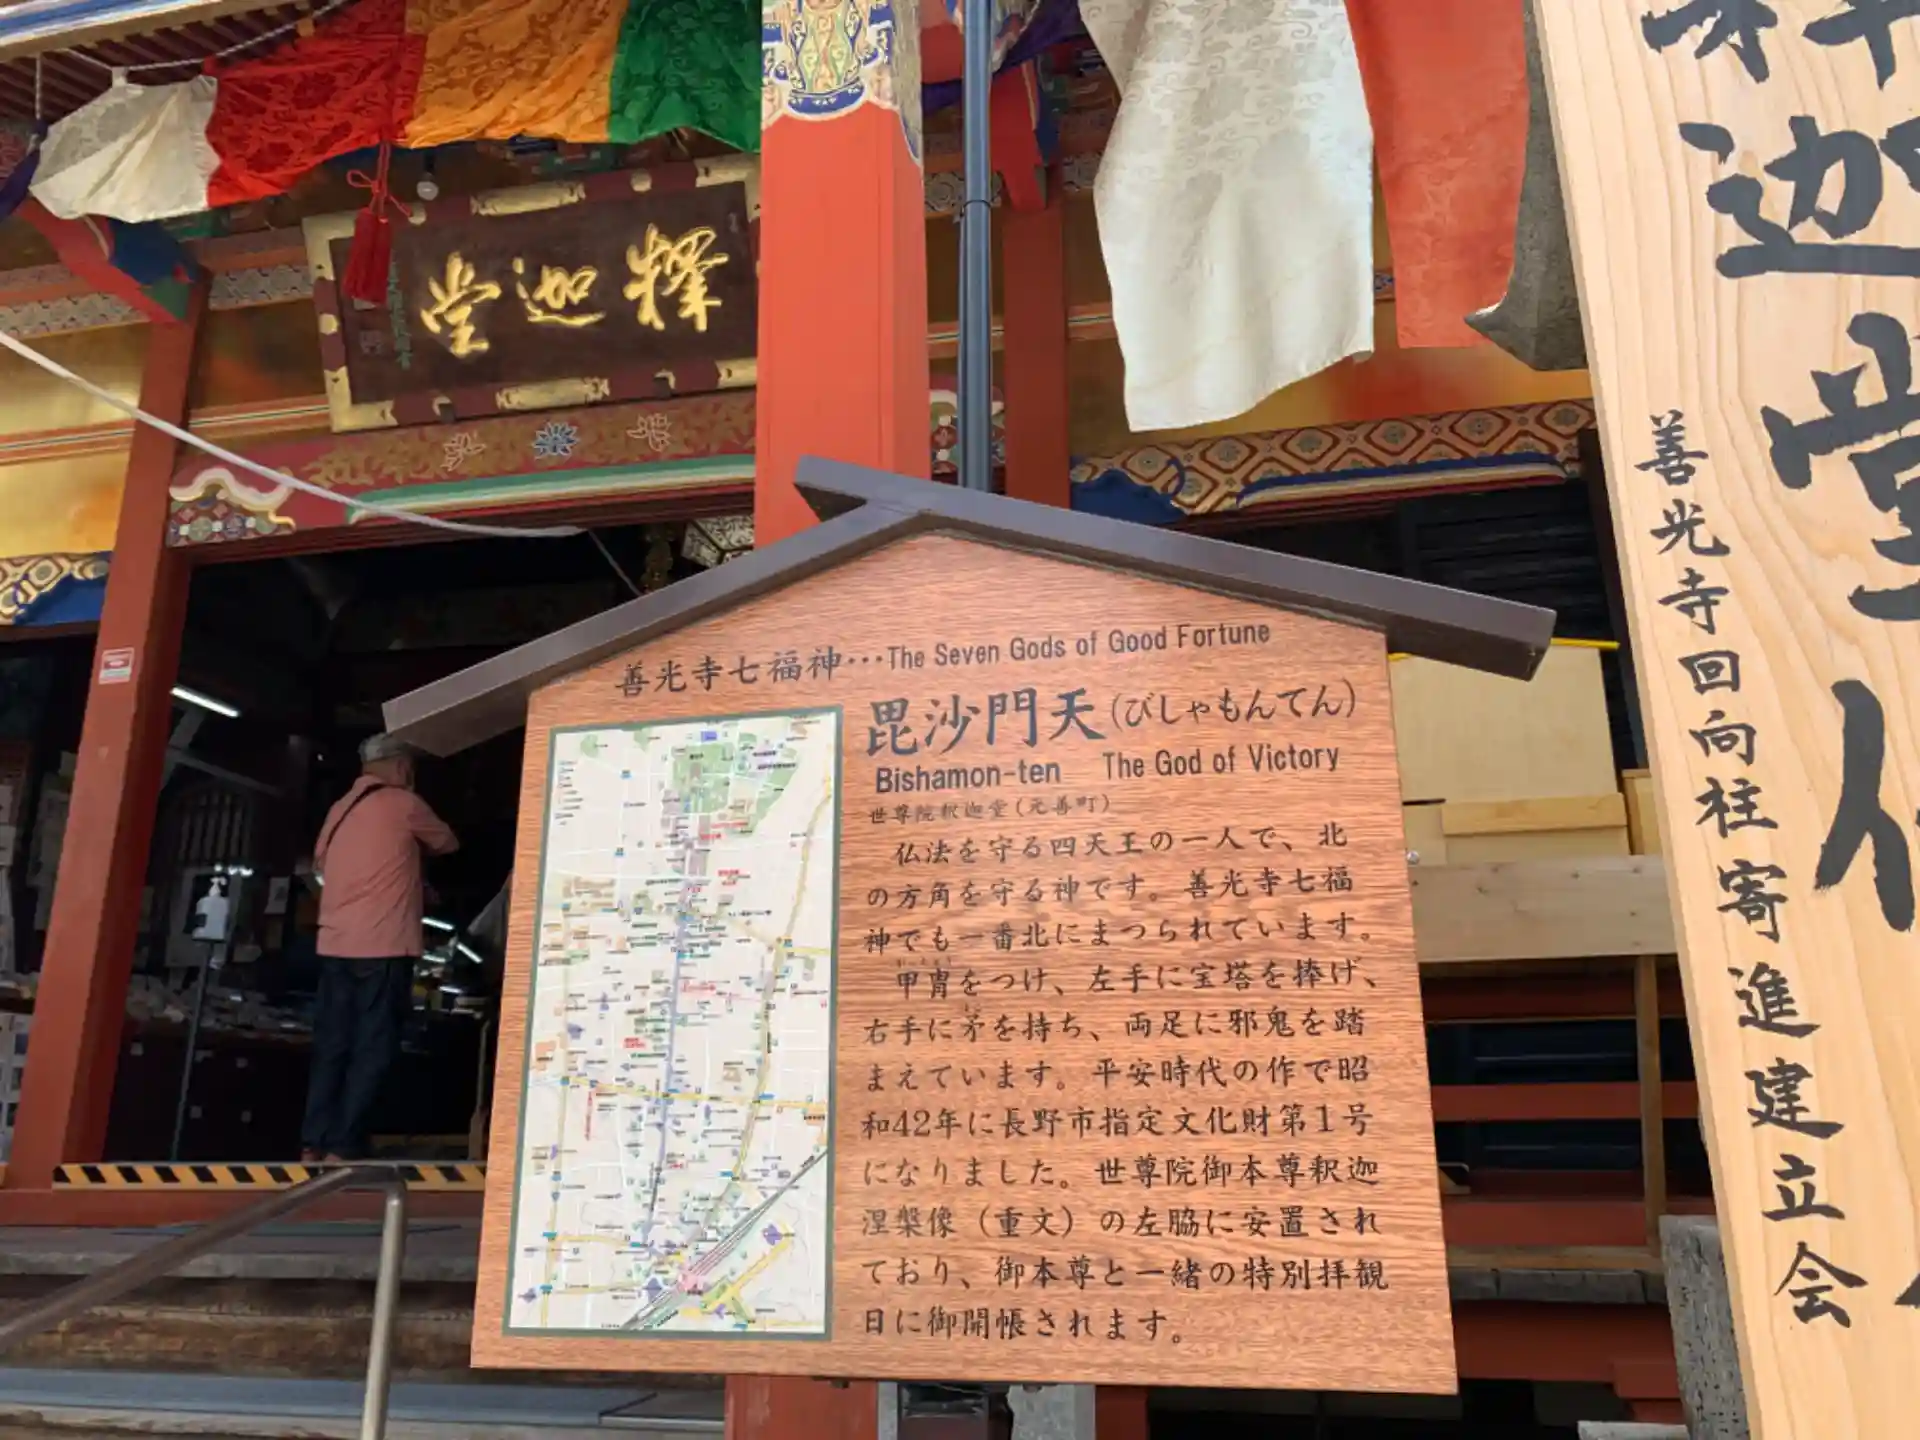 釋迦堂
善光寺七福神・・・The Seven Gods of Good Fortune
毘沙門天(びしゃもんてん)
Bishamon-ten The God of Victory
世尊院釈迦堂(元善町)
仏法を守る四天王の一人で、北
の方角を守る神です。善光寺七福
神でも一番北にまつられています。
甲冑をつけ、左手に宝塔を捧げ、
右手に矛を持ち、両足に邪鬼を踏
まえています。平安時代の作で昭
和42年に長野市指定文化財第1号
になりました。世尊院御本尊釈迦
涅槃像(重文)の左脇に安置され
ており、御本尊と一緒の特別拝観
日に御開帳されます。
迦堂
善光寺回向柱寄進建立会